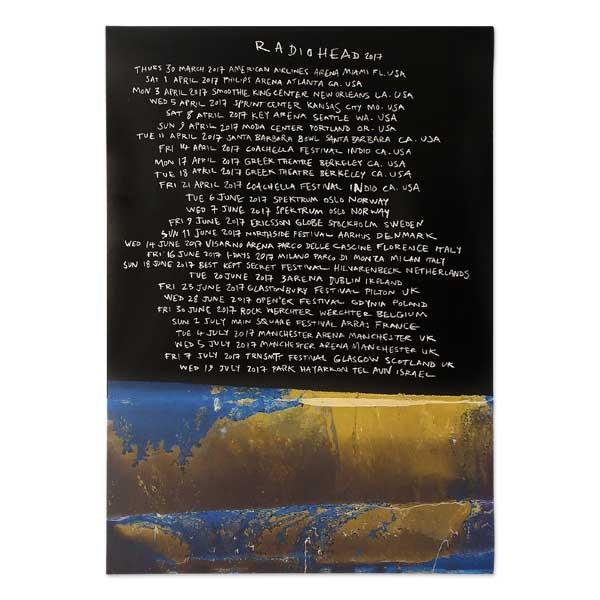 RADIOHEAD 2017
THURS 30 MARCH 2017 AMERICAN AIRLINES ARENA MIAMI FL. USA
SAT 1 APRIL 2017 PHILIPS ARENA ATLANTA GA. USA
MON 3 APRIL 2017 SMOOTHIE KING CENTER NEW ORLEANS LA. USA
WED 5 APRIL 2017 SPRINT CENTER KANSAS CITY MO. USA
SAT 8 APRIL 2017 KEY ARENA SEATTLE WA. USA
SUN 9 APRIL 2017 MODA CENTER PORTLAND OR. USA
TUE 11 APRIL 2017 SANTA BARBARA BOWL SANTA BARBARA CA. USA
FRI 14 APRIL 2017 COACHELLA FESTIVAL INDIO CA. USA
MON 17 APRIL 2017 GREEK THEATRE BERKELEY CA. USA
TUE 18 APRIL 2017 GREEK THEATRE BERKELEY CA. USA
FRI 21 APRIL 2017 COACHELLA FESTIVAL INDIO CA. USA
TUE 6 JUNE 2017 SPEKTRUM OSLO NORWAY
WED 7 JUNE 2017 SPEKTRUM OSLO NORWAY
FRI 9 JUNE 2017 ERICSSON GLOBE STOCKHOLM SWEDEN
SUN 11 JUNE 2017 NORTHSIDE FESTIVAL AARHUS DENMARK
WED 14 JUNE 2017 VISARNO ARENA PARCO DELLE CASCINE FLORENCE ITALY
FRI 16 JUNE 2017 I-DAYS 2017 MILANO PARCO DI MONZA MILAN ITALY
SUN 18 JUNE 2017 BEST KEPT SECRET FESTIVAL HILVARENBECK NETHERLANDS
TUE 20 JUNE 2017 3ARENA DUBLIN IRELAND
FRI 23 JUNE 2017 GLASTONBURY FESTIVAL PILTON UK
WED 28 JUNE 2017 OPEN'ER FESTIVAL GDYNIA POLAND
FRI 30 JUNE 2017 ROCK WERCHTER WERCHTER BELGIUM
SUN 2 JULY MAIN SQUARE FESTIVAL ARRAS FRANCE
TUE 4 JULY 2017 MANCHESTER ARENA MANCHESTER UK
WED 5 JULY 2017 MANCHESTER ARENA MANCHESTER UK
FRI 7 JULY 2017 TRNSMT FESTIVAL GLASGOW SCOTLAND UK
WED 19 JULY 2017 PARK HAYARKON TEL AVIV ISRAEL